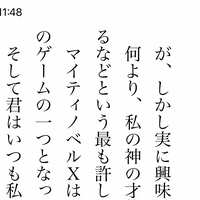 11:48
が、しかし実に興味
何より、私の神の才
るなどという最も許し
マイティノベルXは
のゲームの一つとなっ
そして君はいつも私